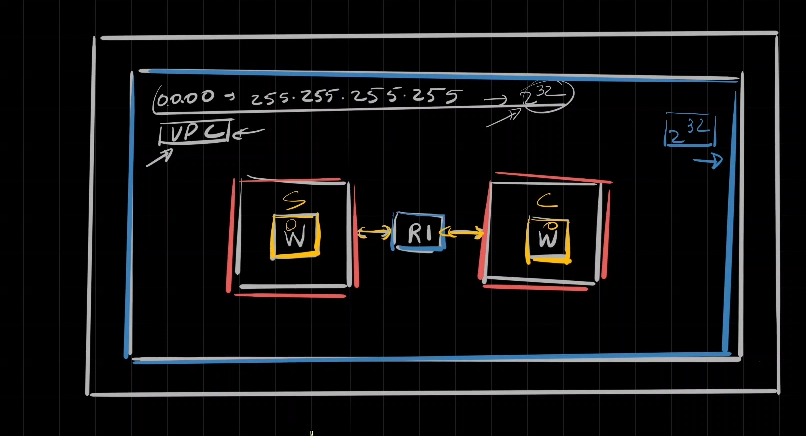 0.0.0.0 → 255.255.255.255 → 2^32
VPC ←
2^32
S
C
O
W
R1
O
W